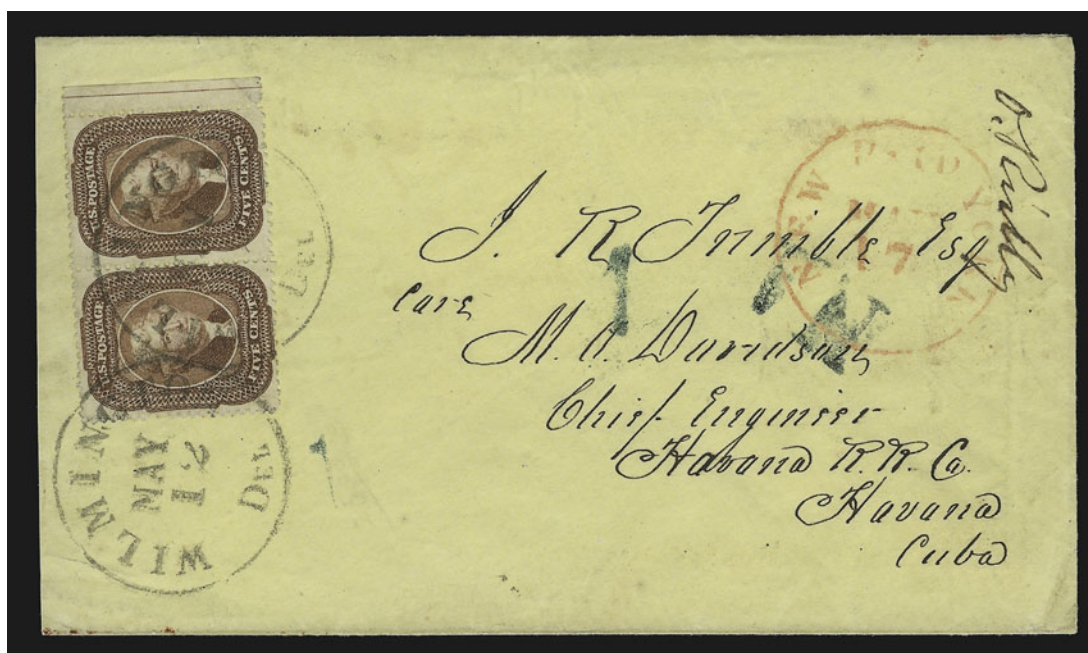 U.S. POSTAGE
FIVE CENTS
U.S. POSTAGE
FIVE CENTS
DEL
WILMIN
DEL
MAY
12
NEW YORK
PAID
MAY
17
1
J. R. Trimble Esq
care
M. O. Davidson,
Chief Engineer
Havana R. R. Co.
Havana
Cuba